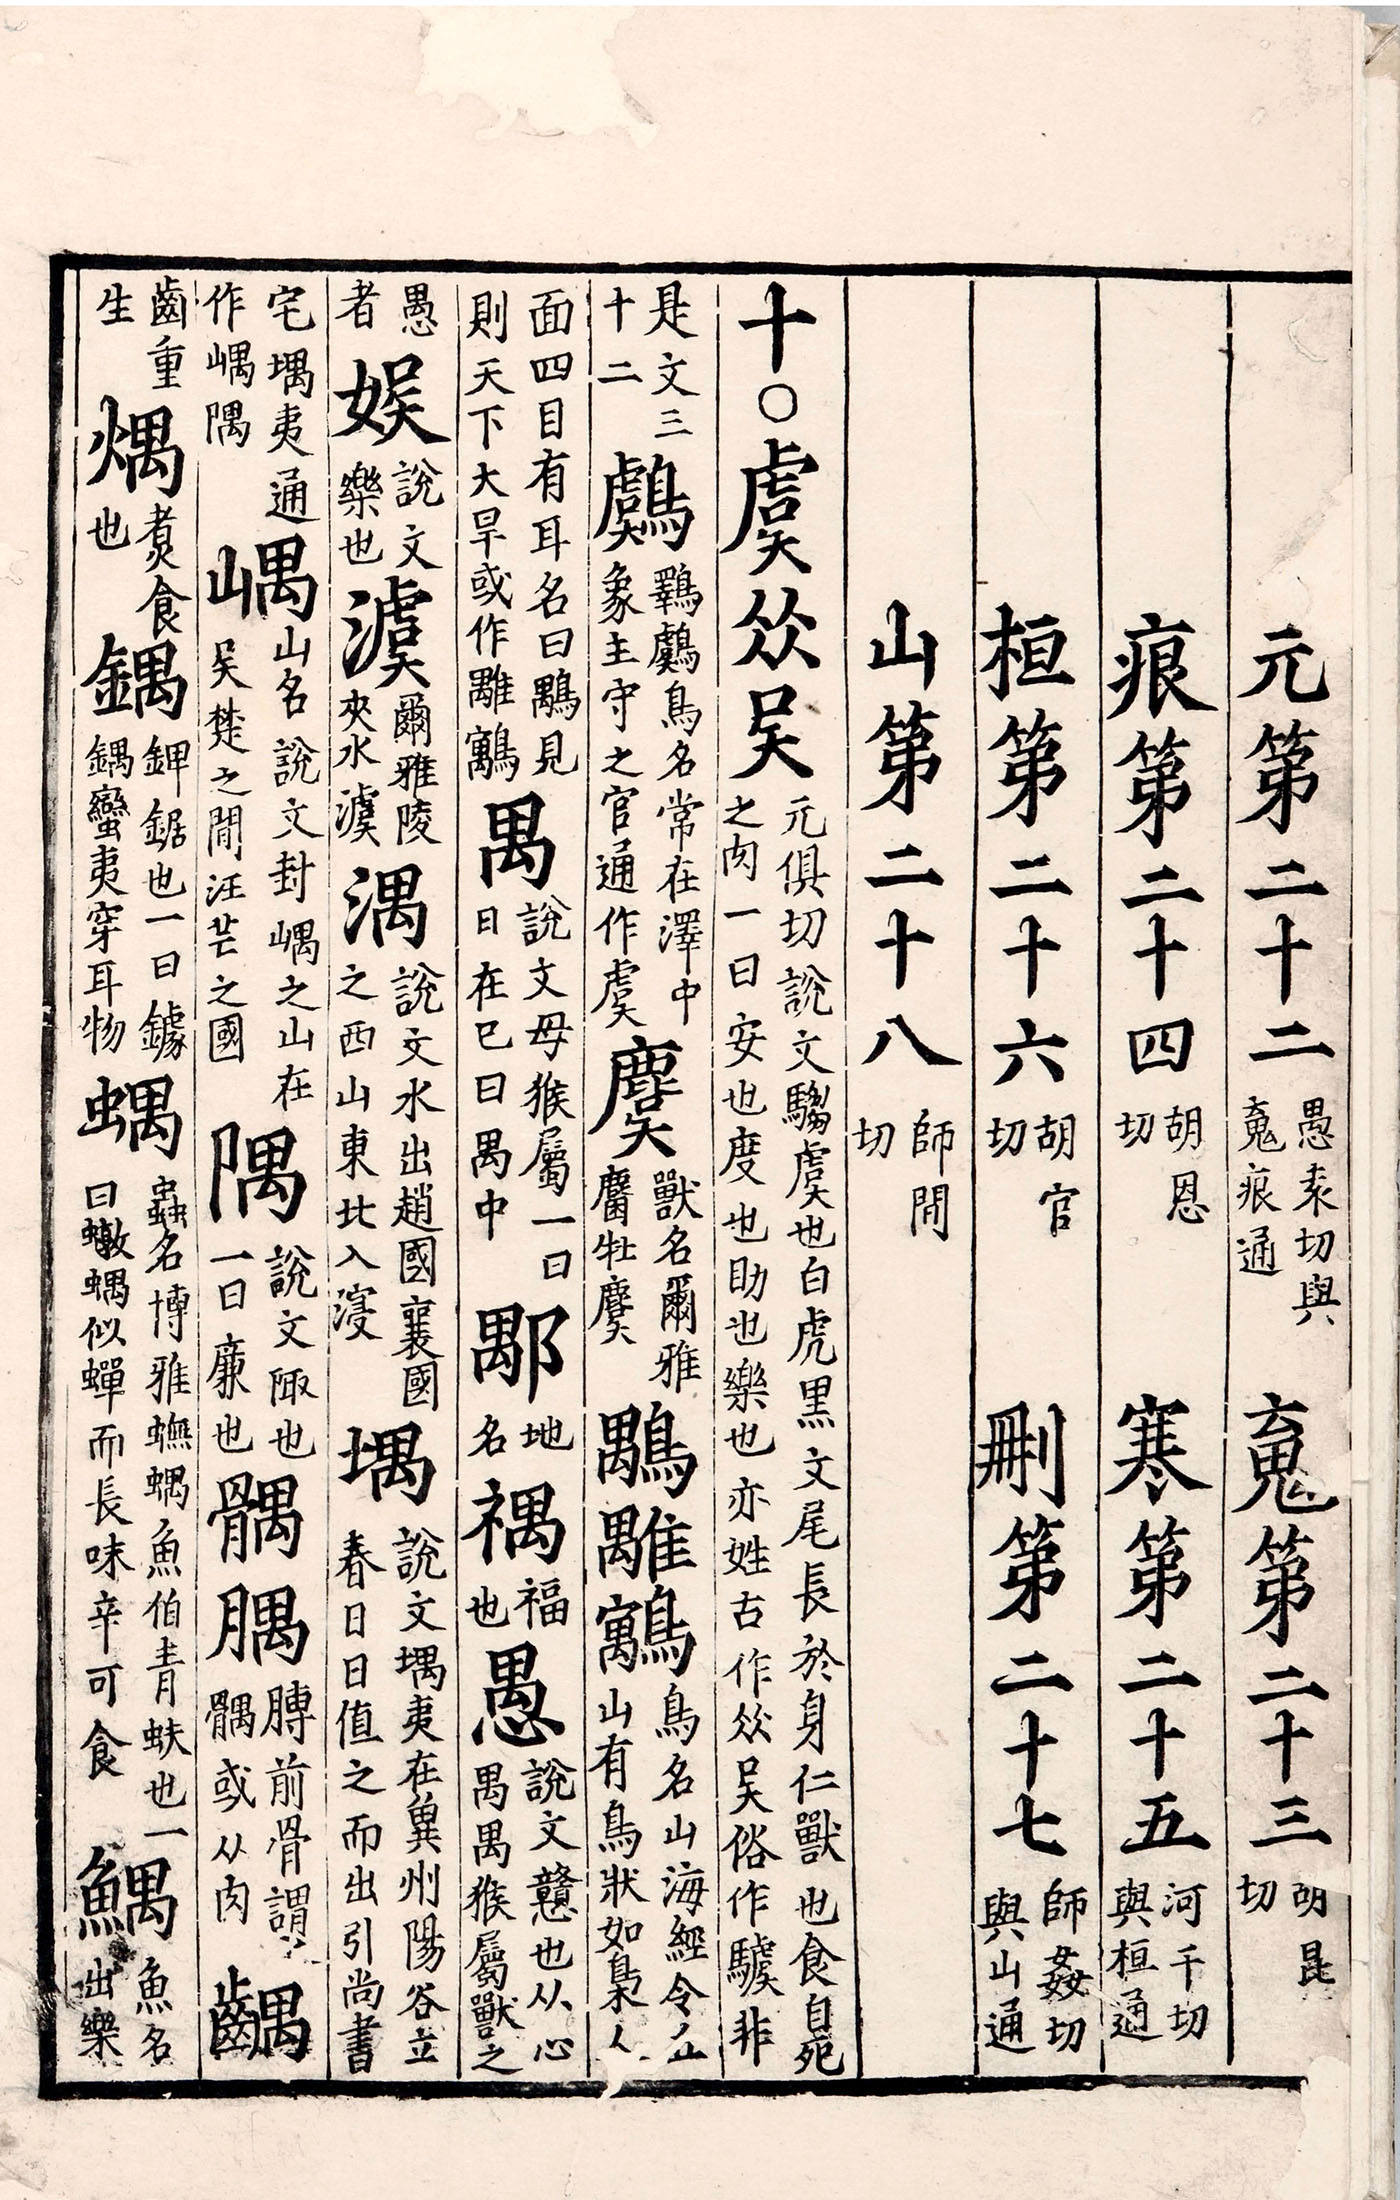 元第二十二愚袁切與䰟痕通　䰟第二十三胡昆切
痕第二十四胡恩切　寒第二十五河干切與桓通
桓第二十六胡官切　刪第二十七師姦切與山通
山第二十八師閒切
十〇虞𠈌吴元俱切說文騶虞也白虎黑文尾長於身仁獸也食自死之肉一曰安也度也助也樂也亦姓古作𠈌吴俗作驉非
是文三十二䴁鸅䴁鳥名常在澤中象主守之官通作虞麌獸名爾雅麕牡麌鷠𩀛鸆鳥名山海經令丘山有鳥狀如梟人
面四目有耳名曰鷠見則天下大旱或作𩀛鸆禺說文母猴屬一曰日在巳曰禺中鄅地名禑福也愚說文戇也从心禺禺猴屬獸之
愚者娛說文樂也澞爾雅陵夾水澞湡說文水出趙國襄國之西山東北入寖堣說文堣夷在冀州陽谷立春日日值之而出引尚書
宅堣夷通作嵎隅嵎山名說文封嵎之山在吴楚之閒汪芒之國隅說文陬也一曰廉也髃腢髆前骨謂髃或从肉齵
齒重生㷒煮食也鍝鉀鋸也一曰鐻鍝蠻夷穿耳物蝺蟲名博雅蟱蝺魚伯青蚨也一曰蟙蝺似蟬而長味辛可食鰅魚名出樂